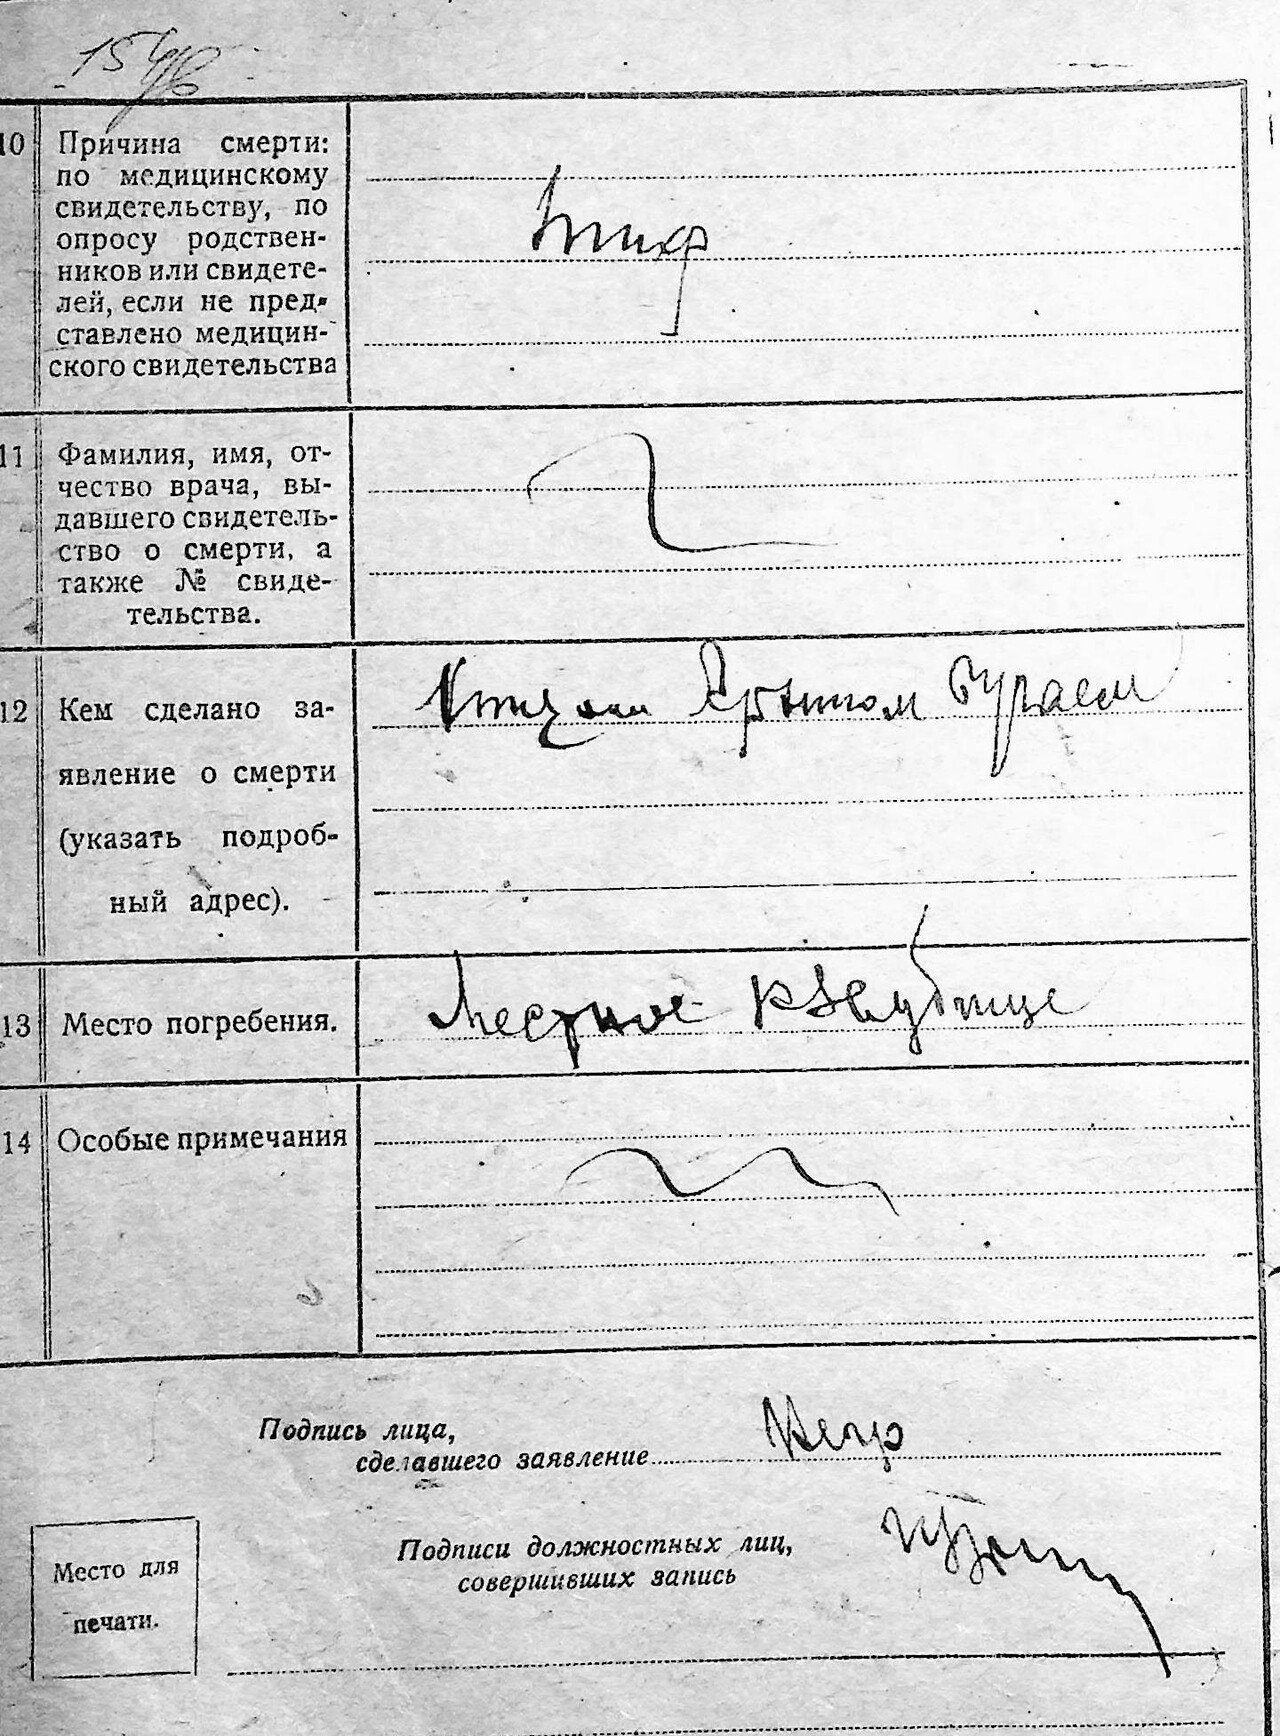 15
10 Причина смерти:
по медицинскому
свидетельству, по
опросу родствен-
ников или свидете-
лей, если не пред-
ставлено медицин-
ского свидетельства
тиф
11 Фамилия, имя, от-
чество врача, вы-
давшего свидетель-
ство о смерти, а
также № свиде-
тельства.
12 Кем сделано за-
явление о смерти
(указать подроб-
ный адрес).
13 Место погребения.
Местное кладбище
14 Особые примечания
Подпись лица,
сделавшего заявление
Подписи должностных лиц,
совершивших запись
Место для
печати.